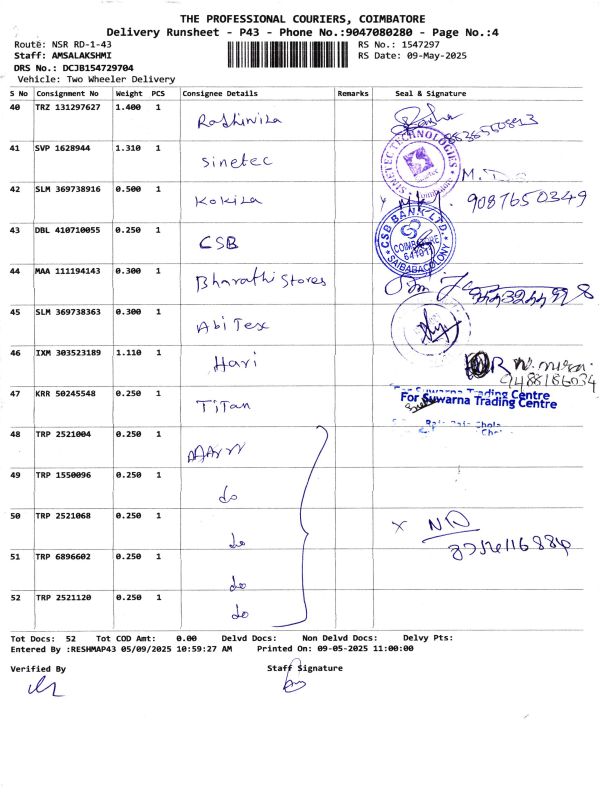 THE PROFESSIONAL COURIERS, COIMBATORE
Delivery Runsheet - P43 - Phone No.:9047080280 - Page No.:4
Route: NSR RD-1-43
RS No.: 1547297
Staff: AMSALAKSHMI
RS Date: 09-May-2025
DRS No.: DCJB154729704
Vehicle: Two Wheeler Delivery
S No Consignment No Weight PCS Consignee Details Remarks Seal & Signature
40 TRZ 131297627 1.400 1
41 SVP 1628944 1.310 1 Sinetec
SINETEC TECHNOLOGIES
42 SLM 369738916 0.500 1 Kokila 9087650349
43 DBL 410710055 0.250 1 CSB
CSB BANK LTD.
COIMBATORE
641011
SAIBABACOLONY
44 MAA 111194143 0.300 1 Bharathi Stores
45 SLM 369738363 0.300 1 Abi Tex
46 IXM 303523189 1.110 1 Hari
9488186034
47 KRR 50245548 0.250 1 Titan
For Suwarna Trading Centre
For Suwarna Trading Centre
48 TRP 2521004 0.250 1
49 TRP 1550096 0.250 1 do
50 TRP 2521068 0.250 1 do x ND
51 TRP 6896602 0.250 1 do
52 TRP 2521120 0.250 1 do
Tot Docs: 52 Tot COD Amt: 0.00 Delvd Docs: Non Delvd Docs: Delvy Pts:
Entered By :RESHMAP43 05/09/2025 10:59:27 AM Printed On: 09-05-2025 11:00:00
Verified By
Staff Signature